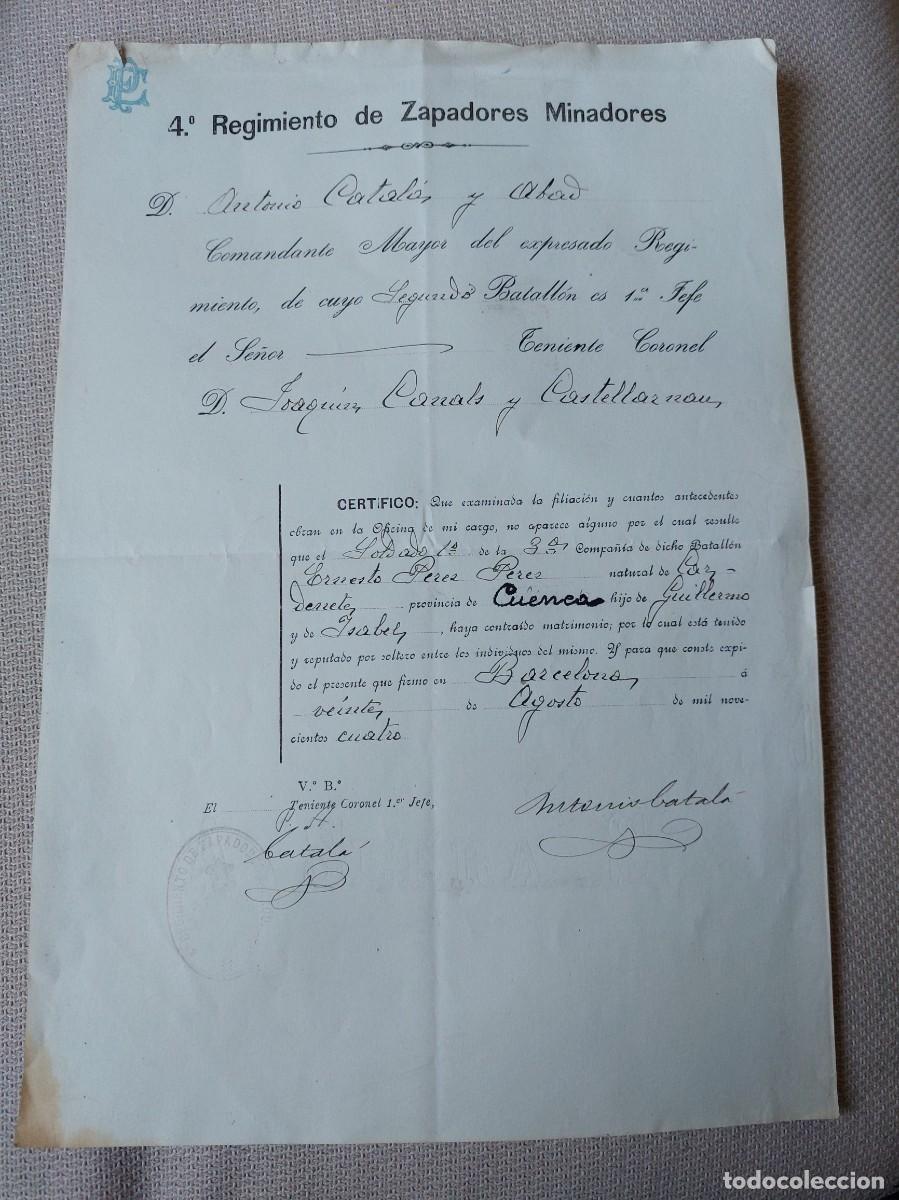 4.º Regimiento de Zapadores Minadores
D. Antonio Catalá y Abad
Comandante Mayor del expresado Regi-
miento, de cuyo Segundo Batallón es 1.er Jefe
el Señor Teniente Coronel
D. Joaquin Canals y Castellarnau
CERTIFICO: Que examinada la filiación y cuantos antecedentes
obran en la Oficina de mi cargo, no aparece alguno por el cual resulte
que el Soldado 1º de la 3ª Compañía de dicho Batallón
Ernesto Perez Perez natural de Car-
denete provincia de Cuenca hijo de Guillermo
y de Isabel, haya contraído matrimonio; por lo cual está tenido
y reputado por soltero entre los individuos del mismo. Y para que conste expi-
do el presente que firmo en Barcelona á
veinte de Agosto de mil nove-
cientos cuatro
V.º B.º
El Teniente Coronel 1.er Jefe,
Antonio Catalá
P. A.
Catalá
todocoleccion